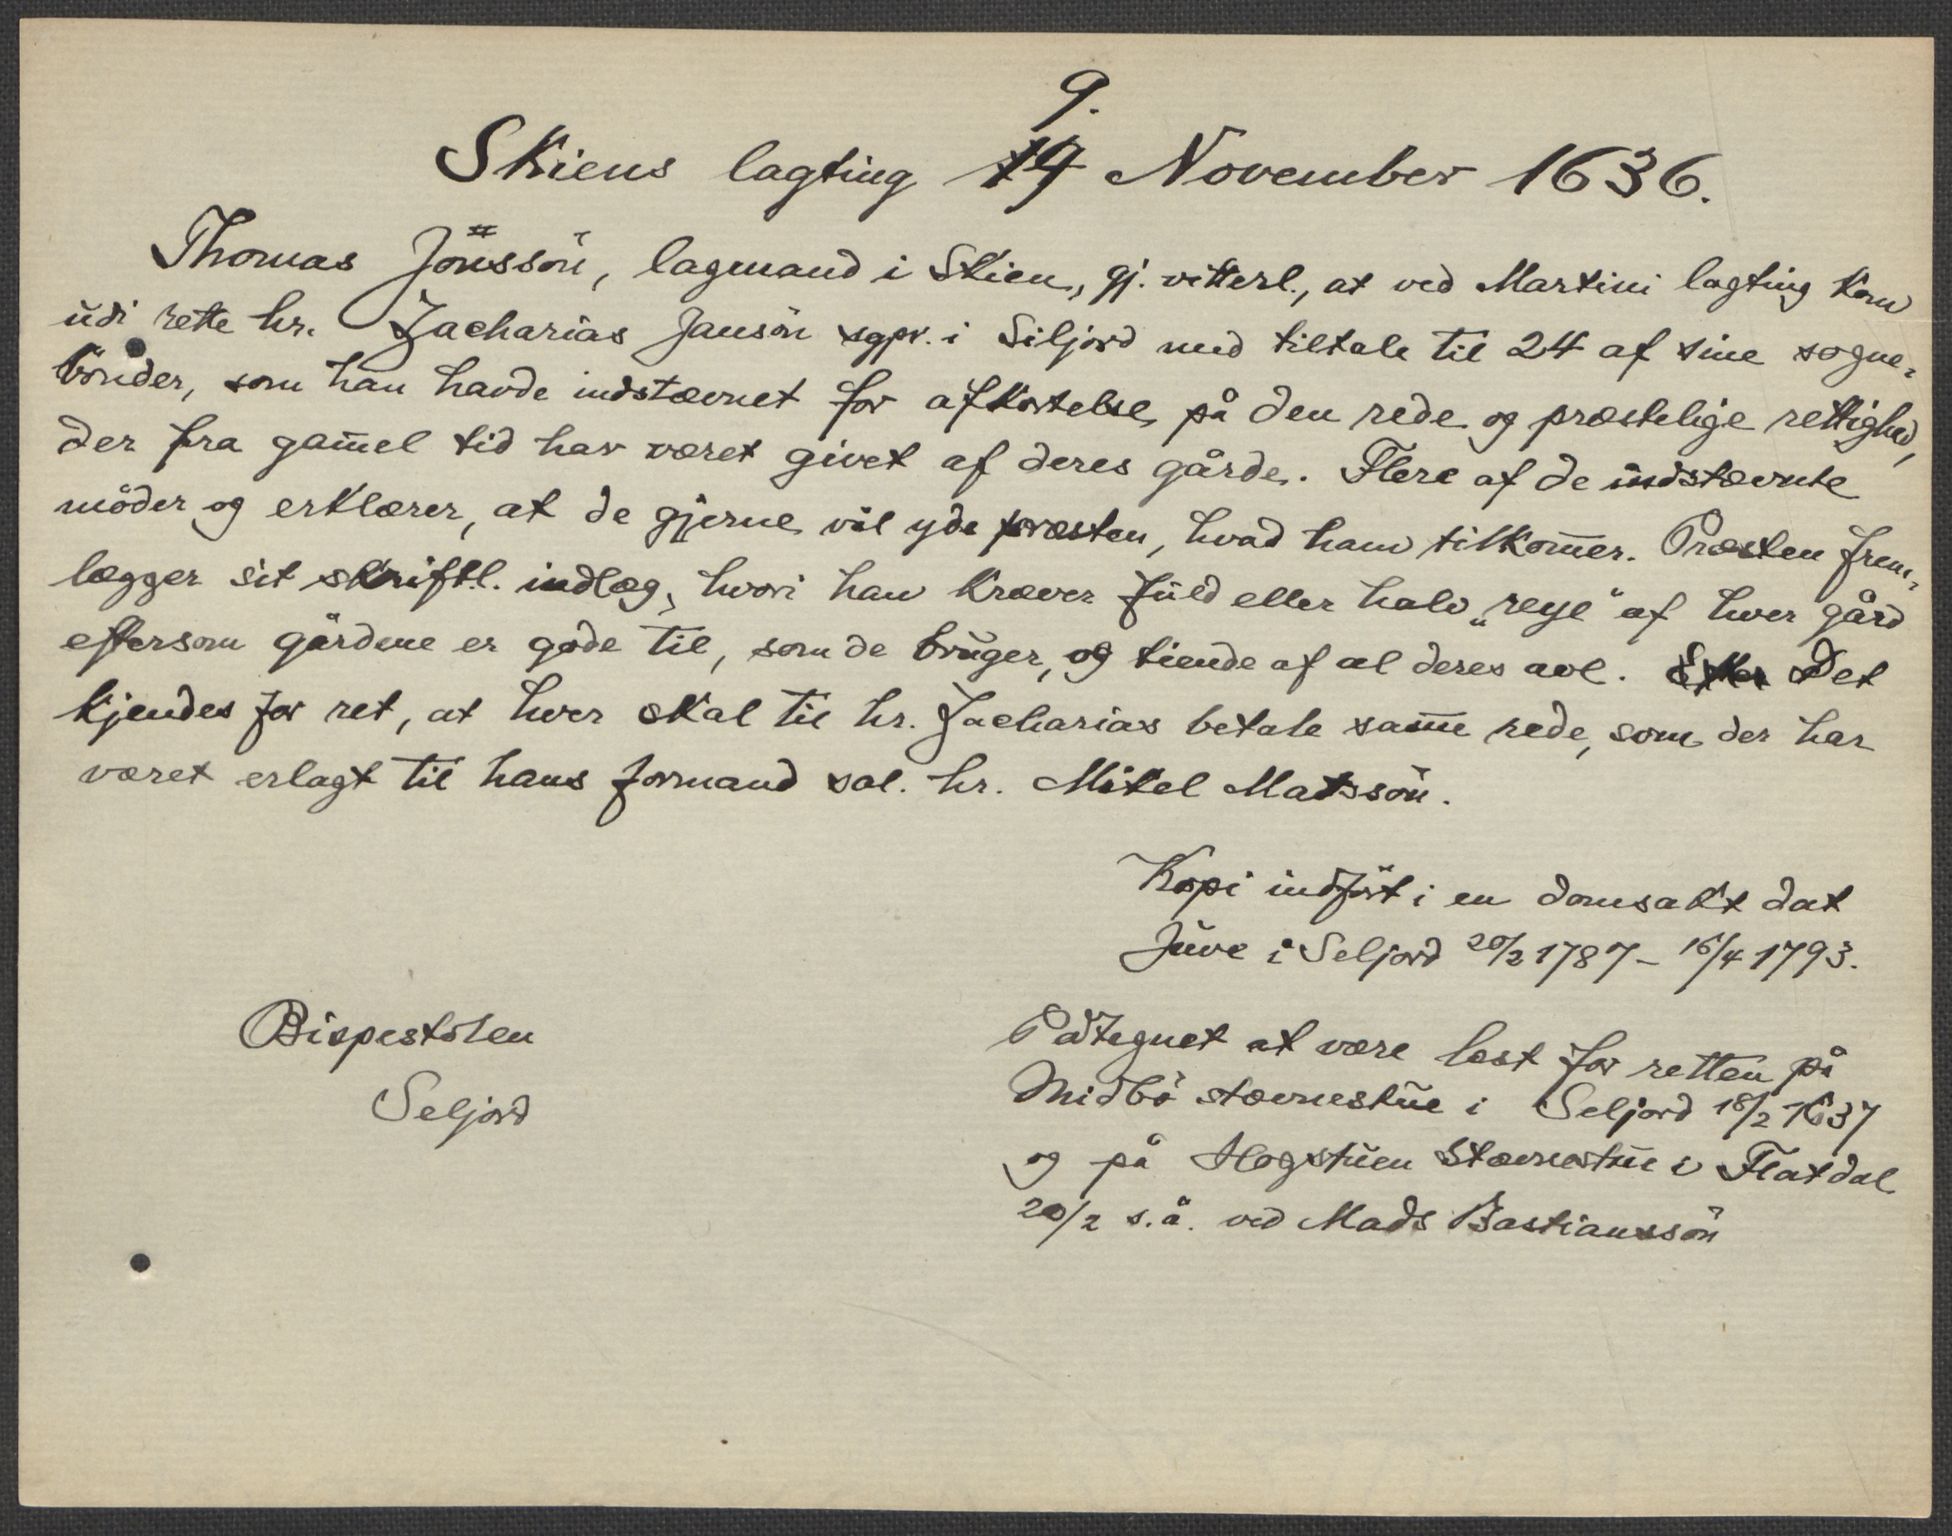 9.
Skiens lagting 14 November 1636.
Thomas Jönssön, lagmand i Skien, gj. vitterl., at ved Martini lagting kom
udi rette hr. Zacharias Jansön sgpr. i Siljord med tiltale til 24 af sine sogne-
bönder, som han havde indstævnet for afkortelse på den rede og præstelige rettighed,
der fra gam̄el tid har været givet af deres gårde. Flere af de indstævnte
möder og erklærer, at de gjerne vil yde præsten, hvad ham tilkom̄er. Præsten frem-
lægger sit skriftl. indlæg, hvori han kræver fuld eller halv „reye“ af hver gård
eftersom gårdene er gode til, som de bruger, og tiende af al deres avl. Efter Det
kjendes for ret, at hver skal til hr. Zacharias betale sam̄e rede, som der har
været erlagt til hans formand sal. hr. Mikel Matssön.
Kopi indfört i en domsakt dat
Juve i Seljord 20/2 1787 - 16/4 1793.
Bispestolen
Seljord
Påtegnet at være læst for retten på
Midbö stævnestue i Seljord 18/2 1637
og på Hogstuen Stævnestue i Flatdal
20/2 s.å. ved Mads Bastianssön